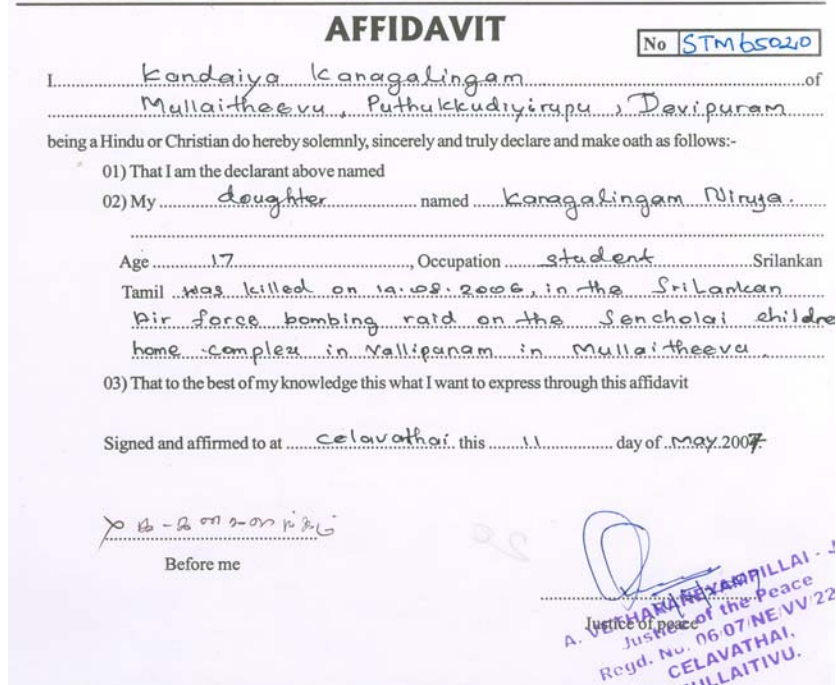 AFFIDAVIT
No STM65020
I Kandaiya Kanagalingam of
Mullaitheevu, Puthukkudiyirupu, Devipuram
being a Hindu or Christian do hereby solemnly, sincerely and truly declare and make oath as follows:-
01) That I am the declarant above named
02) My doughter named Kanagalingam Niruja.
Age 17, Occupation student Srilankan
Tamil was killed on 14.08.2006, in the SriLankan
Air force bombing raid on the Sencholai childre
home complex in Vallipanam in Mullaitheevu.
03) That to the best of my knowledge this what I want to express through this affidavit
Signed and affirmed to at celavathai this 11 day of may 2007.
Before me
Justice of peace
A. VETHARANEYAMPILLAI - J
Justice of the Peace
Regd. No. 06/07/NE/VV/22
CELAVATHAI,
MULLAITIVU.